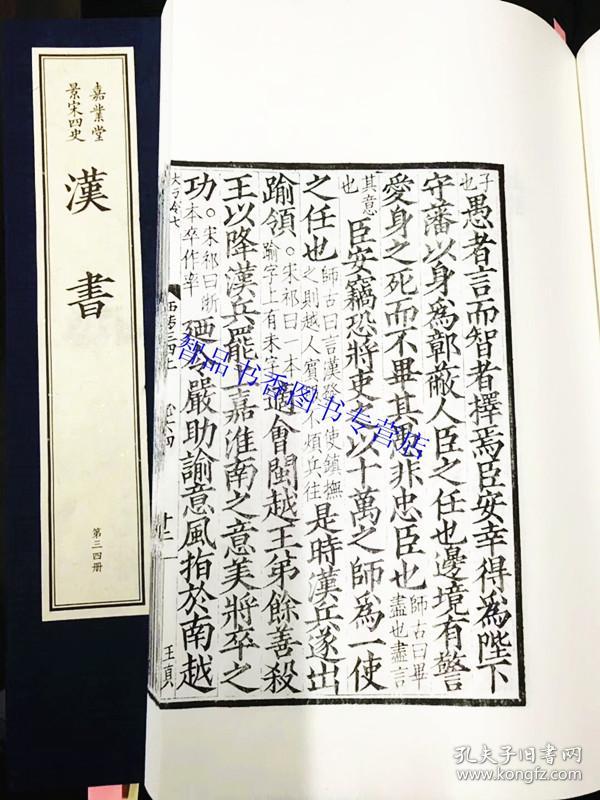 嘉業堂
景宋四史
漢書
第三四册
子也愚者言而智者擇焉臣安幸得爲陛下
守藩以身爲鄣蔽人臣之任也邊境有警
愛身之死而不畢其愚非忠臣也師古曰畢盡也盡言
其意也臣安竊恐將吏之以十萬之師爲一使
之任也師古曰言漢使鎮撫之則越人賓不煩兵往是時漢兵遂出
踰領。宋祁曰一本踰字上有未字適會閩越王弟餘善殺
王以降漢兵罷上嘉淮南之意美將卒之
功。宋祁曰浙本卒作率廼令嚴助諭意風指於南越
廿二
王真
智品书香图书专营店
孔夫子旧书网
www.kongfz.com